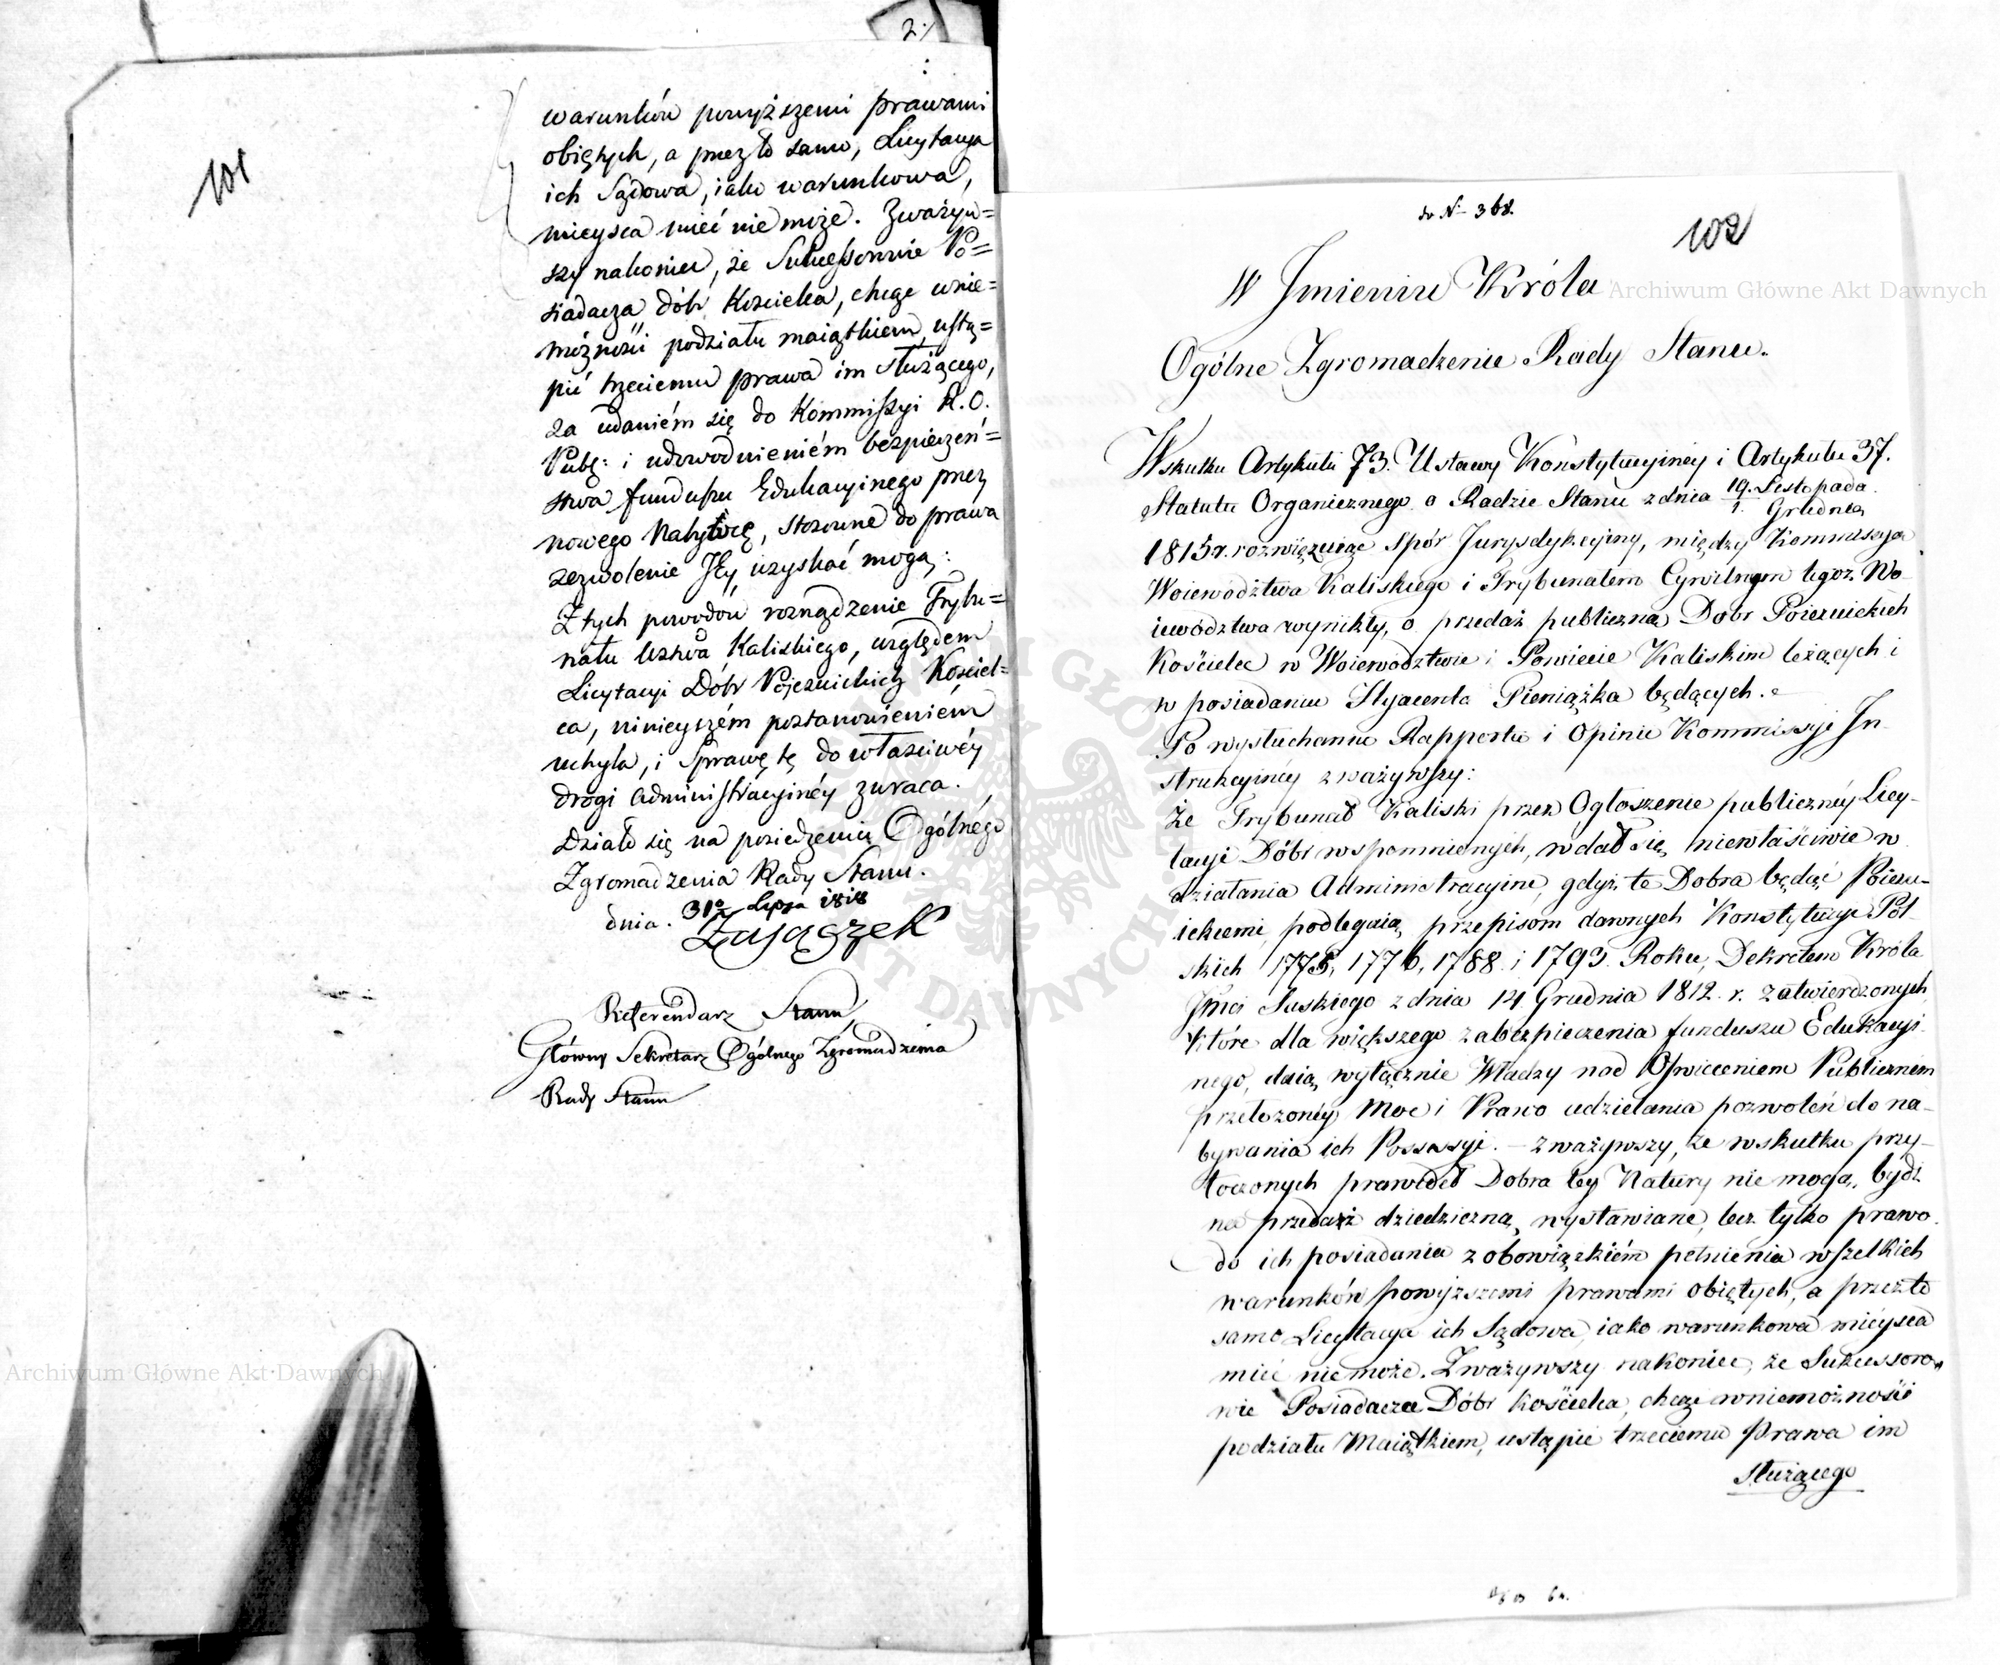 2.
101
warunków powyższemi prawami
obiętych, a przezto samo, Licytacya
ich Sądowa, iako warunkowa,
mieysca mieć nie może. Zważyw=
szy nakoniec, że Sukcessorowie Po=
siadacza dóbr Kościelca, chcąc w nie=
możności podziału maiątkiem, ustą=
pić trzeciemu prawa im służącego,
za udaniém się do Kommissyi R. O.
Publ: i udowodnieniém bezpieczeń=
stwa funduszu Edukacyinego przez
nowego Nabywcę, stosowne do prawa
zezwolenie Jéy uzyskać mogą:
Z tych powodów rozrządzenie Trybu=
nału Wztwa Kaliskiego, względem
Licytacyi Dóbr Pojezuickich Kościel=
ca, ninieyszém postanowieniém
uchyla, i Sprawę tę do właściwéy
drogi administracyinéy zwraca.
Działo się na posiedzeniu Ogólnégo
Zgromadzenia Rady Stanu.
dnia. 31º Lipca 1818
Zajączek
Referendarz Stanu
Główny Sekretarz Ogólnego Zgromadzenia
Rady Stanu
do Nº 368.
102
W Jmieniu Króla
Ogólne Zgromadzenie Rady Stanu.
Wskutku Artykułu 73. Ustawy Konstytucyiney i Artykułu 37.
Statutu Organicznego o Radzie Stanu z dnia 19. Listopada
1. Grudnia
1815 r. rozwięzuiąc Spór Jurysdykcyiny, między Kommissya
Woiewództwa Kaliskiego i Trybunałem Cywilnym tegoż Wo-
iewództwa wynikły, o przedaż publiczną Dobr Poiezuickich
Kościelec w Woiewództwie i Powiecie Kaliskim leżących i
w posiadaniu Hyacenta Pieniążka będących.
Po wysłuchaniu Rapportu i Opinii Kommissyi In-
strukcyinéy zważywszy:
Że Trybunał Kaliski przez Ogłoszenie publicznéy Licy-
tacyi Dóbr wspomnionych, wdał się niewłaściwie w
działania Administracyine, gdyż te Dobra będąc Poiezu-
ickiemi, podlegaią przepisom dawnych Konstytucyi Pol-
skich 1775, 1776, 1788 i 1793 Roku, Dekretem Króla
Jmci Saskiego z dnia 14 Grudnia 1812. r. zatwierdzonych,
Które dla większego zabezpieczenia funduszu Edukacyi-
nego, daią wyłącznie Władzy nad Oświeceniem Publicznem
przełożonéy Moc i Prawo udzielania pozwoleń do na-
bywania ich Possessyi. – zważywszy, że wskutku przy-
toczonych prawideł Dobra téy Natury nie mogą, bydź
na przedaż dziedziczną wystawiane, lecz tylko prawo
do ich posiadania z obowiązkiém pełnienia wszelkich
warunków powyższemi prawami obiętych, a przezto
samo Licytacya ich Sądowa, iako warunkowa mieysca
mieć nie może. Zważywszy nakoniec, że Sukcessoro-
wie Posiadacza Dóbr Kościelca, chcąc w niemożności
podziału Maiątkiem, ustąpić trzeciemu Prawa im
służącego
Archiwum Główne Akt Dawnych
Archiwum Główne Akt Dawnych